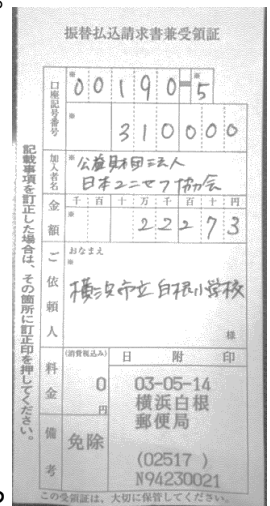 振替払込請求書兼受領証
口座記号番号
※ 00190-※5
※ 310000
加入者名
※ 公益財団法人
日本ユニセフ協会
金額
千 百 十 万 千 百 十 円
※ 22273
ご依頼人
おなまえ
※
横浜市立白根小学校
様
料金
(消費税込み)
0
円
備考
免除
日 附 印
03-05-14
横浜白根
郵便局
(02517 )
N94230021
記載事項を訂正した場合は、その箇所に訂正印を押してください。
この受領証は、大切に保管してください。